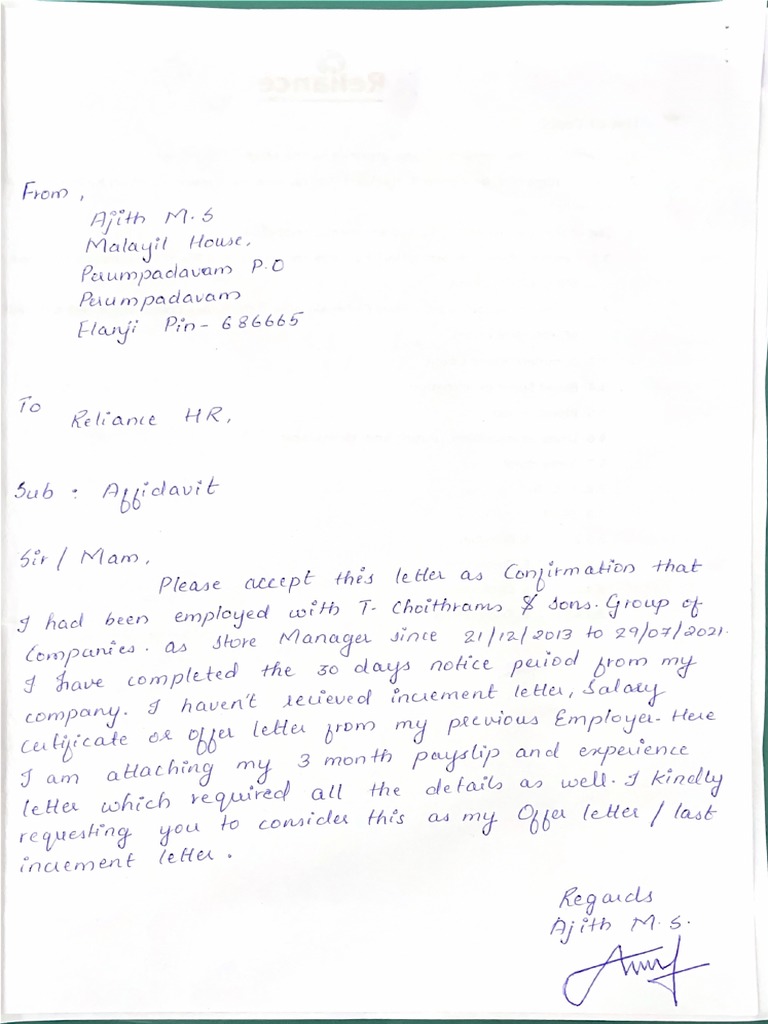 From,
Ajith M.S
Malayil House,
Perumpadavam P.O
Perumpadavam
Elanji Pin- 686665
To
Reliance HR,
Sub : Affidavit
Sir / Mam,
Please accept this letter as Confirmation that
I had been employed with T. Choithrams & Sons. Group of
Companies. as Store Manager since 21/12/2013 to 29/07/2021.
I have completed the 30 days notice period from my
company. I haven't recieved increment letter, Salary
Certificate or offer letter from my previous Employer. Here
I am attaching my 3 month payslip and experience
letter which required all the details as well. I kindly
requesting you to consider this as my Offer letter / last
increment letter.
Regards
Ajith M.S.